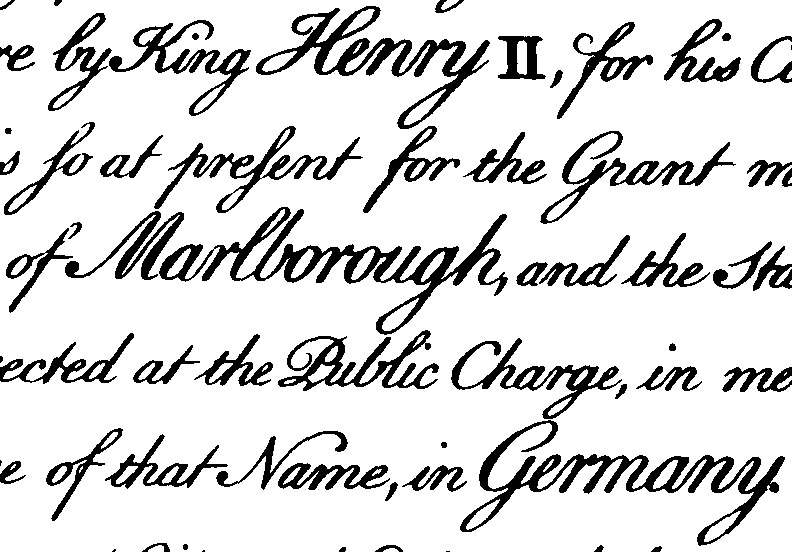 re by King Henry II, for his C
is ſo at preſent for the Grant m
of Marlborough, and the Sta
ected at the Public Charge, in me
e of that Name, in Germany.